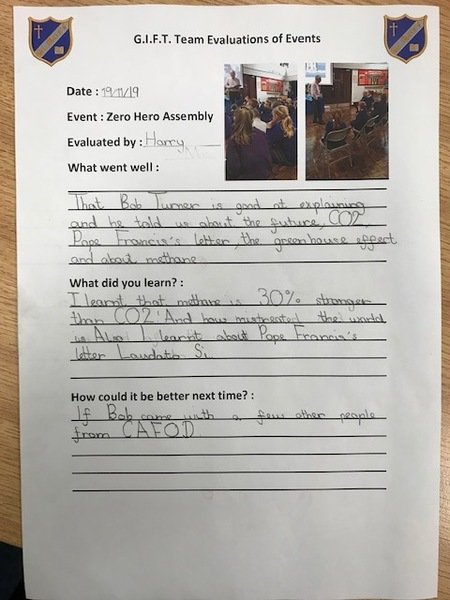 G.I.F.T. Team Evaluations of Events
Date : 19/11/19
Event : Zero Hero Assembly
Evaluated by : Harry
What went well :
That Bob Turner is good at explaining
and he told us about the future, CO2
Pope Francis's letter, the greenhouse effect
and about methane.
What did you learn? :
I learnt that methane is 30% stronger
than CO2! And how mistreated the world
is. Also I learnt about Pope Francis's
letter Laudato Si.
How could it be better next time? :
If Bob came with a few other people
from CAFOD.